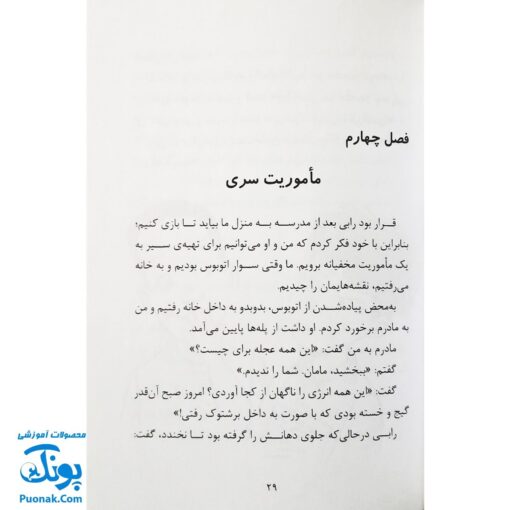 فصل چهارم
مأموریت سری
قرار بود رابی بعد از مدرسه به منزل ما بیاید تا بازی کنیم؛
بنابراین با خود فکر کردم که من و او می‌توانیم برای تهیه‌ی سیر به
یک مأموریت مخفیانه برویم. ما وقتی سوار اتوبوس بودیم و به خانه
می‌رفتیم، نقشه‌هایمان را چیدیم.
به‌محض پیاده‌شدن از اتوبوس، بدوبدو به داخل خانه رفتیم و من
به مادرم برخورد کردم. او داشت از پله‌ها پایین می‌آمد.
مادرم به من گفت: «این همه عجله برای چیست؟»
گفتم: «ببخشید، مامان. شما را ندیدم.»
گفت: «این همه انرژی را ناگهان از کجا آوردی؟ امروز صبح آن‌قدر
گیج و خسته بودی که با صورت به داخل برشتوک رفتی!»
رابی درحالی‌که جلوی دهانش را گرفته بود تا نخندد، گفت:
۲۹
محصولات آموزشی
پونک
Puonak.Com